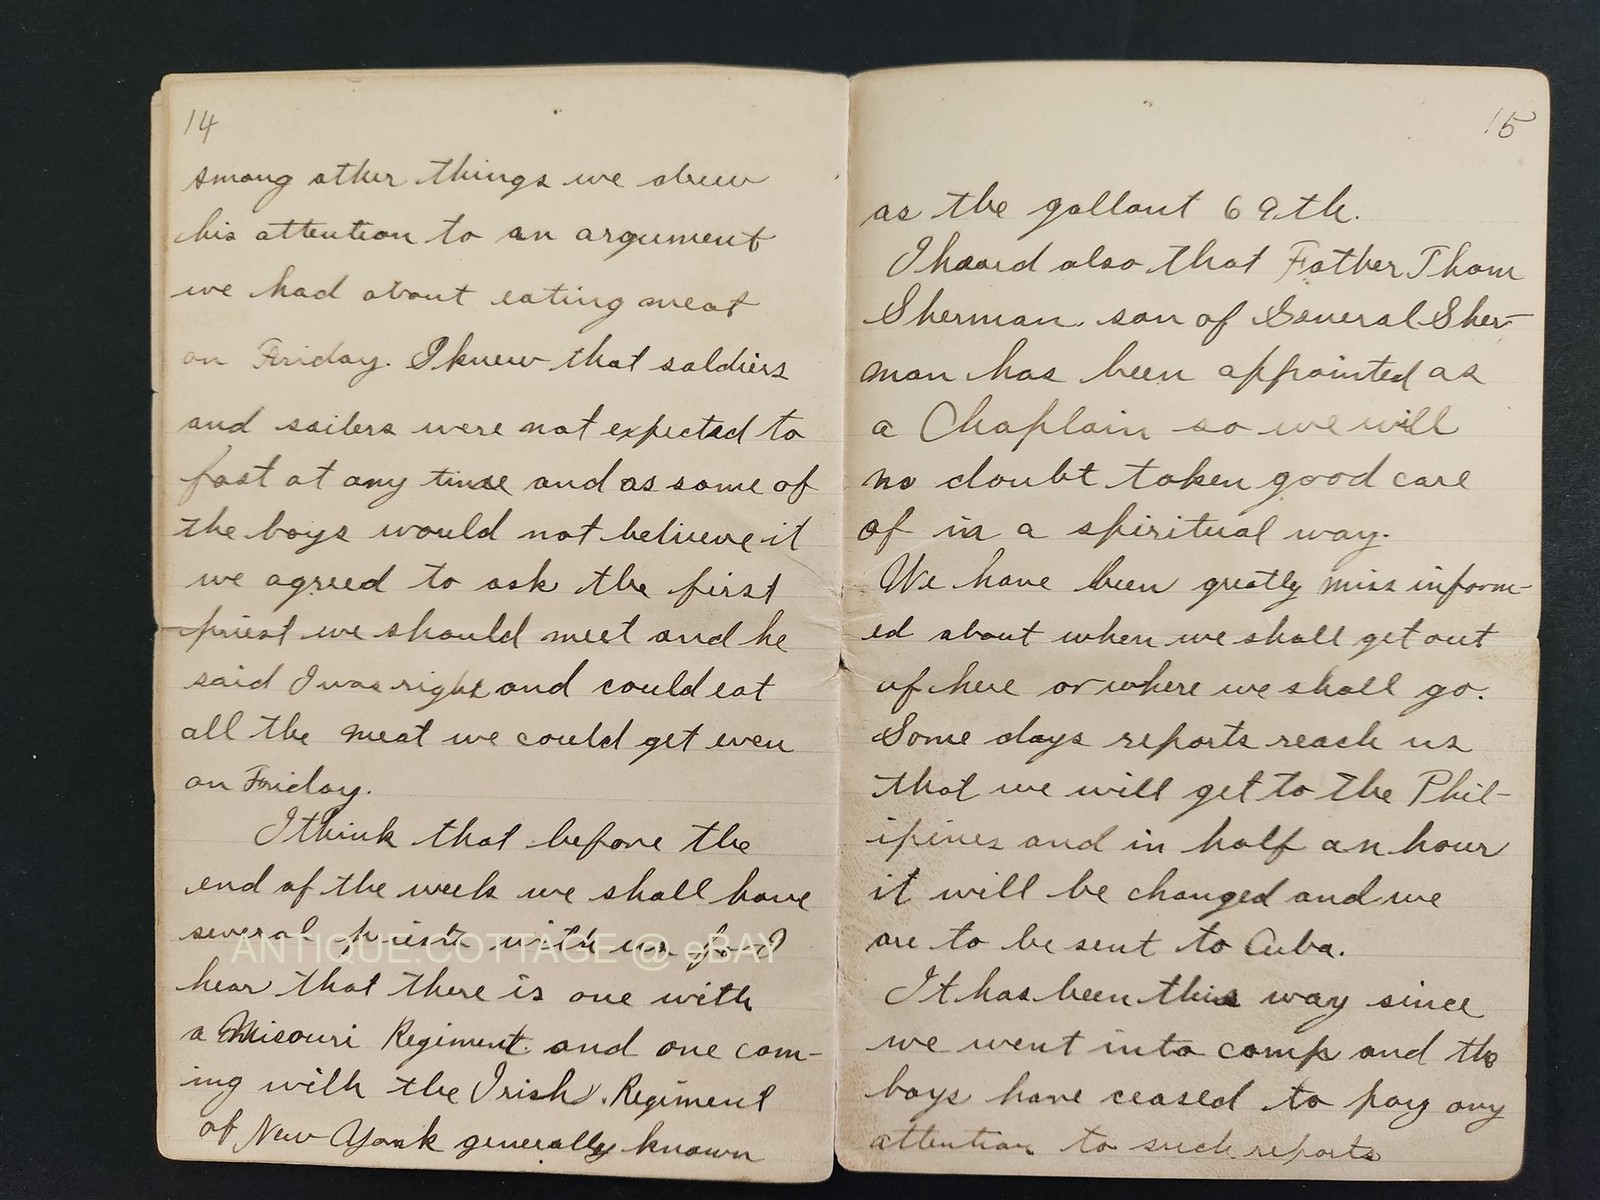 14
Among other things we drew
his attention to an argument
we had about eating meat
on Friday. I knew that soldiers
and sailers were not expected to
fast at any time and as some of
the boys would not believe it
we agreed to ask the first
priest we should meet and he
said I was right and could eat
all the meat we could get even
on Friday.
I think that before the
end of the week we shall have
several priests with us for I
hear that there is one with
a Misouri Regiment and one com-
ing with the Irish Regiment
of New York generally known
15
as the gallant 69th.
I heard also that Father Thom
Sherman, son of General Sher-
man has been appointed as
a Chaplain so we will
no doubt taken good care
of in a spiritual way.
We have been greatly miss inform-
ed about when we shall get out
of here or where we shall go.
Some days reports reach us
that we will get to the Phil-
ipines and in half an hour
it will be changed and we
are to be sent to Cuba.
It has been this way since
we went into camp and the
boys have ceased to pay any
attention to such reports
ANTIQUE.COTTAGE @ eBAY